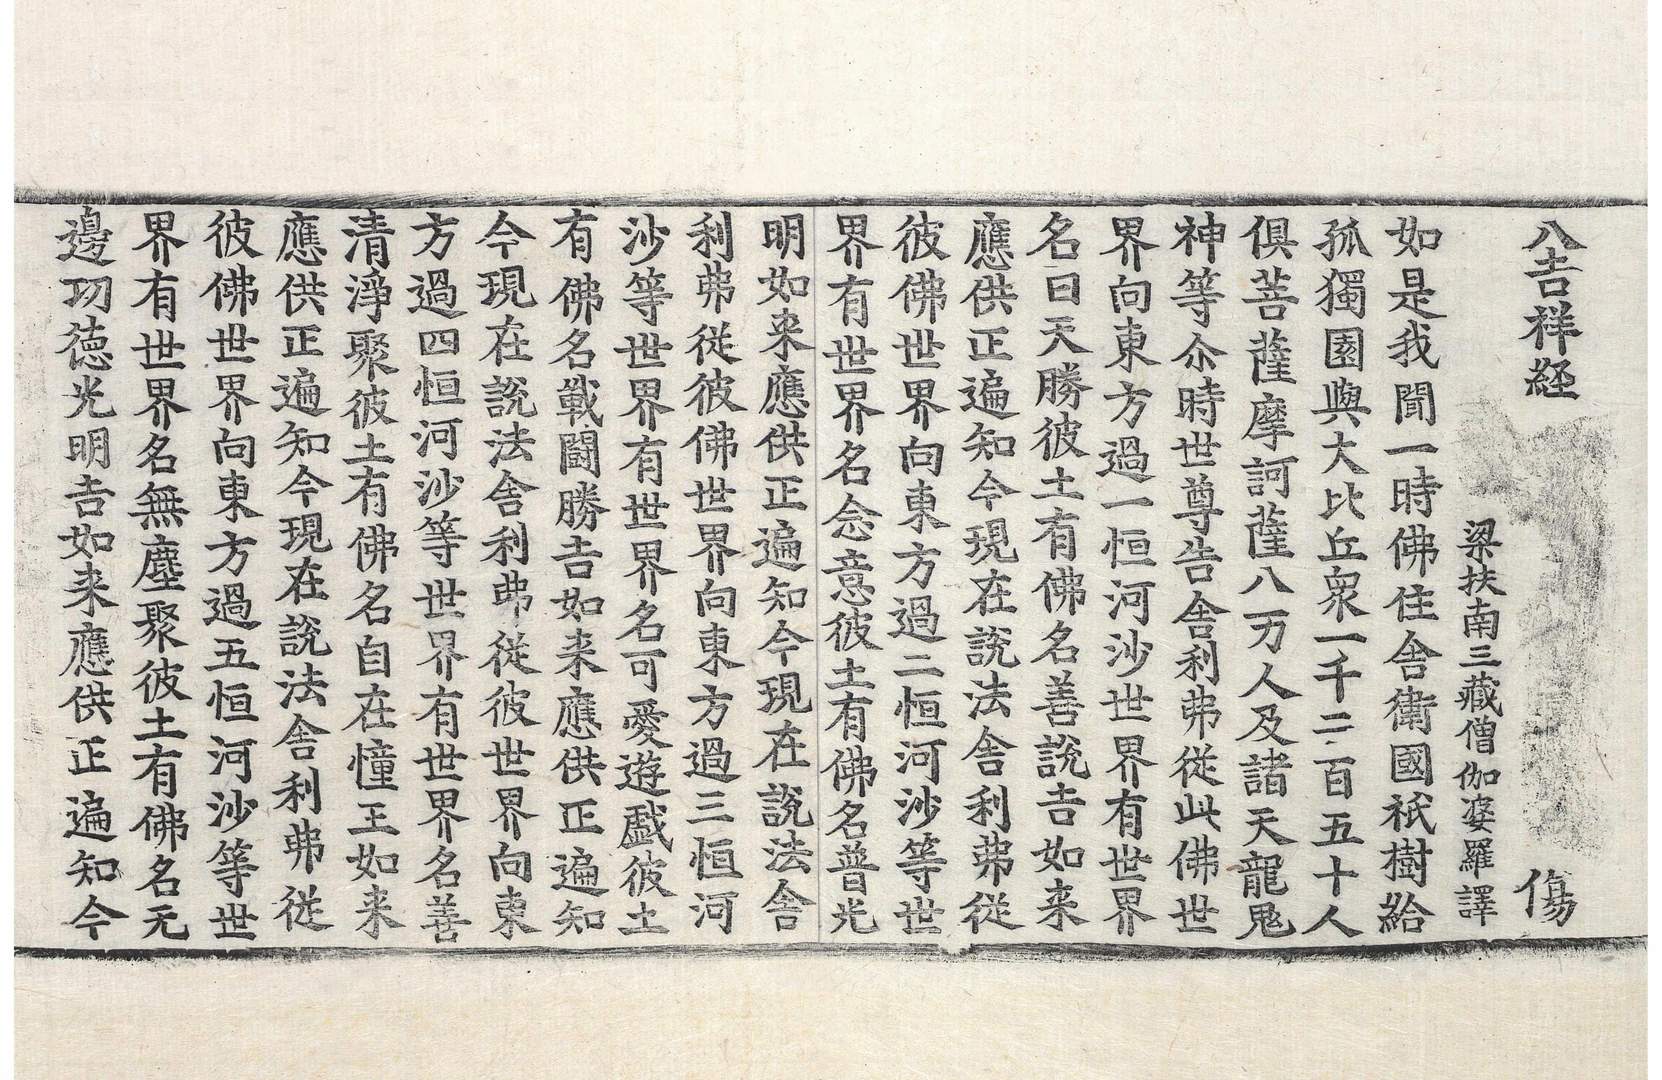 八吉祥経 傷
梁扶南三藏僧伽婆羅譯
如是我聞一時佛住舍衛國祇樹給
孤獨園與大比丘衆一千二百五十人
俱菩薩摩訶薩八万人及諸天龍鬼
神等尒時世尊告舍利弗從此佛世
界向東方過一恒河沙世界有世界
名曰天勝彼土有佛名善說吉如来
應供正遍知今現在說法舍利弗従
彼佛世界向東方過二恒河沙等世
界有世界名念意彼土有佛名普光
明如来應供正遍知今現在說法舍
利弗従彼佛世界向東方過三恒河
沙等世界有世界名可愛遊戯彼土
有佛名戰鬪勝吉如来應供正遍知
今現在說法舍利弗従彼世界向東
方過四恒河沙等世界有世界名善
清淨聚彼土有佛名自在憧王如来
應供正遍知今現在說法舍利弗従
彼佛世界向東方過五恒河沙等世
界有世界名無塵聚彼土有佛名无
邊功徳光明吉如来應供正遍知今